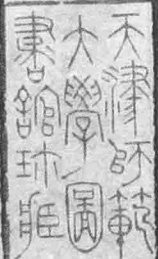 天津師範
大學圖
書館珍臧